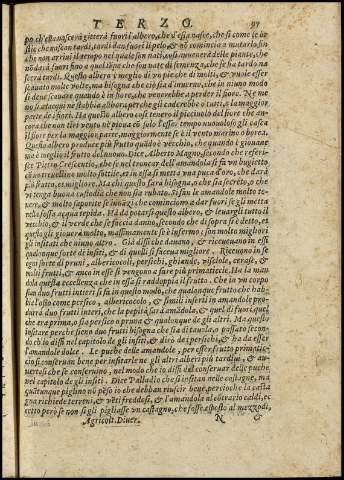 TERZO. 97
po ch'esta nasce ò gitterà fuori l'albero, che v'esi à nasce, che si come le be
stie che nascon tardi, tardi danfuori il pelo, & nõ comincia à mutarlo, fin
che non arrivi il tempo nel quale son nati, cosi auuenerà delle piante, che
nõ darà fuori fino a quel tẽpo che son nate di semenza, che se ha tardo na
scerà tardi. Questo albero è meglio di un piè che di molti, & vuole esser
scauato molte volte, ma bisogna che ciò sia d'inuerno, che in niuno modo
si deue scauare quando è in fiore, che verrebbe, à perder il fiore. Ne me
no si atocchi nè stabbia albora, perche gli caderebbe ò tutti, ò la maggior
parte de' fiori. Ha questo albero cosi tenero il picciuolo del fiore che an-
cora che non tiri vento nè pioua cõ solo l'esser tempo nuuoloso gli casca
il fiore per la maggior parte, maggiormente se è il vento marino ò borea.
Questo albero produce più frutto quãdo è vecchio, che quando è giouane
ma è meglio il frutto del nouo. Dice, Alberto Magno, secondo che referi-
sce Pietro Crescentio, che se nel troncar dell'amandola si fa vn bugietto,
cõ vn triuellino molto sottile, et in essa si metta vna puca d'oro, che darà
più frutto, et migliore. Ma ciò questo sarà bisogno, ò che sia secreto, ò che
vi tenga buona custodia che non sia rubato. Si fan le amandole molto te-
nere, & molto saporite se inanzi che comincino a dar fuori se gli metta
nella fossa acqua tepida. Hà da potarsi questo albero, & leuargli tutto il
vecchio, & il verde che se faccia danno, secondo che di sopra si è detto, et
questo li giouerà molto, massimamente se è infermo; son molto migliori
gli insitati che niuno altro. Già dissi che danano, & riceueuano in essi
qualonque sorte di insiti, & di quelli si faceua migliore. Riceuono in se
ogni sorte di pruni, albericocoli, persichi, ghiande, visciole, cerase, &
mili frutti, & anco in esse si vengono a fare più primaticcie. Ha la man
dola questa eccellenza che in essa si raddoppia il frutto. Che in vn corpo
stan duo frutti interi si fa in questo modo, che qualunque frutto che hab-
bia l'osso come persico, albericocolo, & simili inseriti in amandole produ
rrà duo frutti interi, che la pepita sarà amãdola, & quel di fuori quel
che era prima, ò sia persico ò pruna & qualonque de gli altri. Ma questo
insitare perche sieno duo frutti bisogna che sia di tauola, ò passato secon-
do ch'io dissi nel capitolo de gli insiti, & dirò de i persichi, & ha da esser
l'amandole dolce. Le puche delle amandole, per esser frutto primatic-
cio, si conseruan bene per insitarle ne gli altri alberi più tardiui, & auuer
tasi che se conseruino, nel modo che io dissi del conseruar delle puche
nel capitolo de gli insiti. Dice Palladio che si insitan nelle castagne, ma
quãtunque piglino nõ pẽso io che debban riuscir bene, percioche la casta
gna richiede terreni, & vẽti freddosi, & l'amandola al cõtrario caldi, ec
cetto però se non si gli pigliasse vn castagno, che fosse esposto al mezzodi,
Agricolt. Diuer. N &